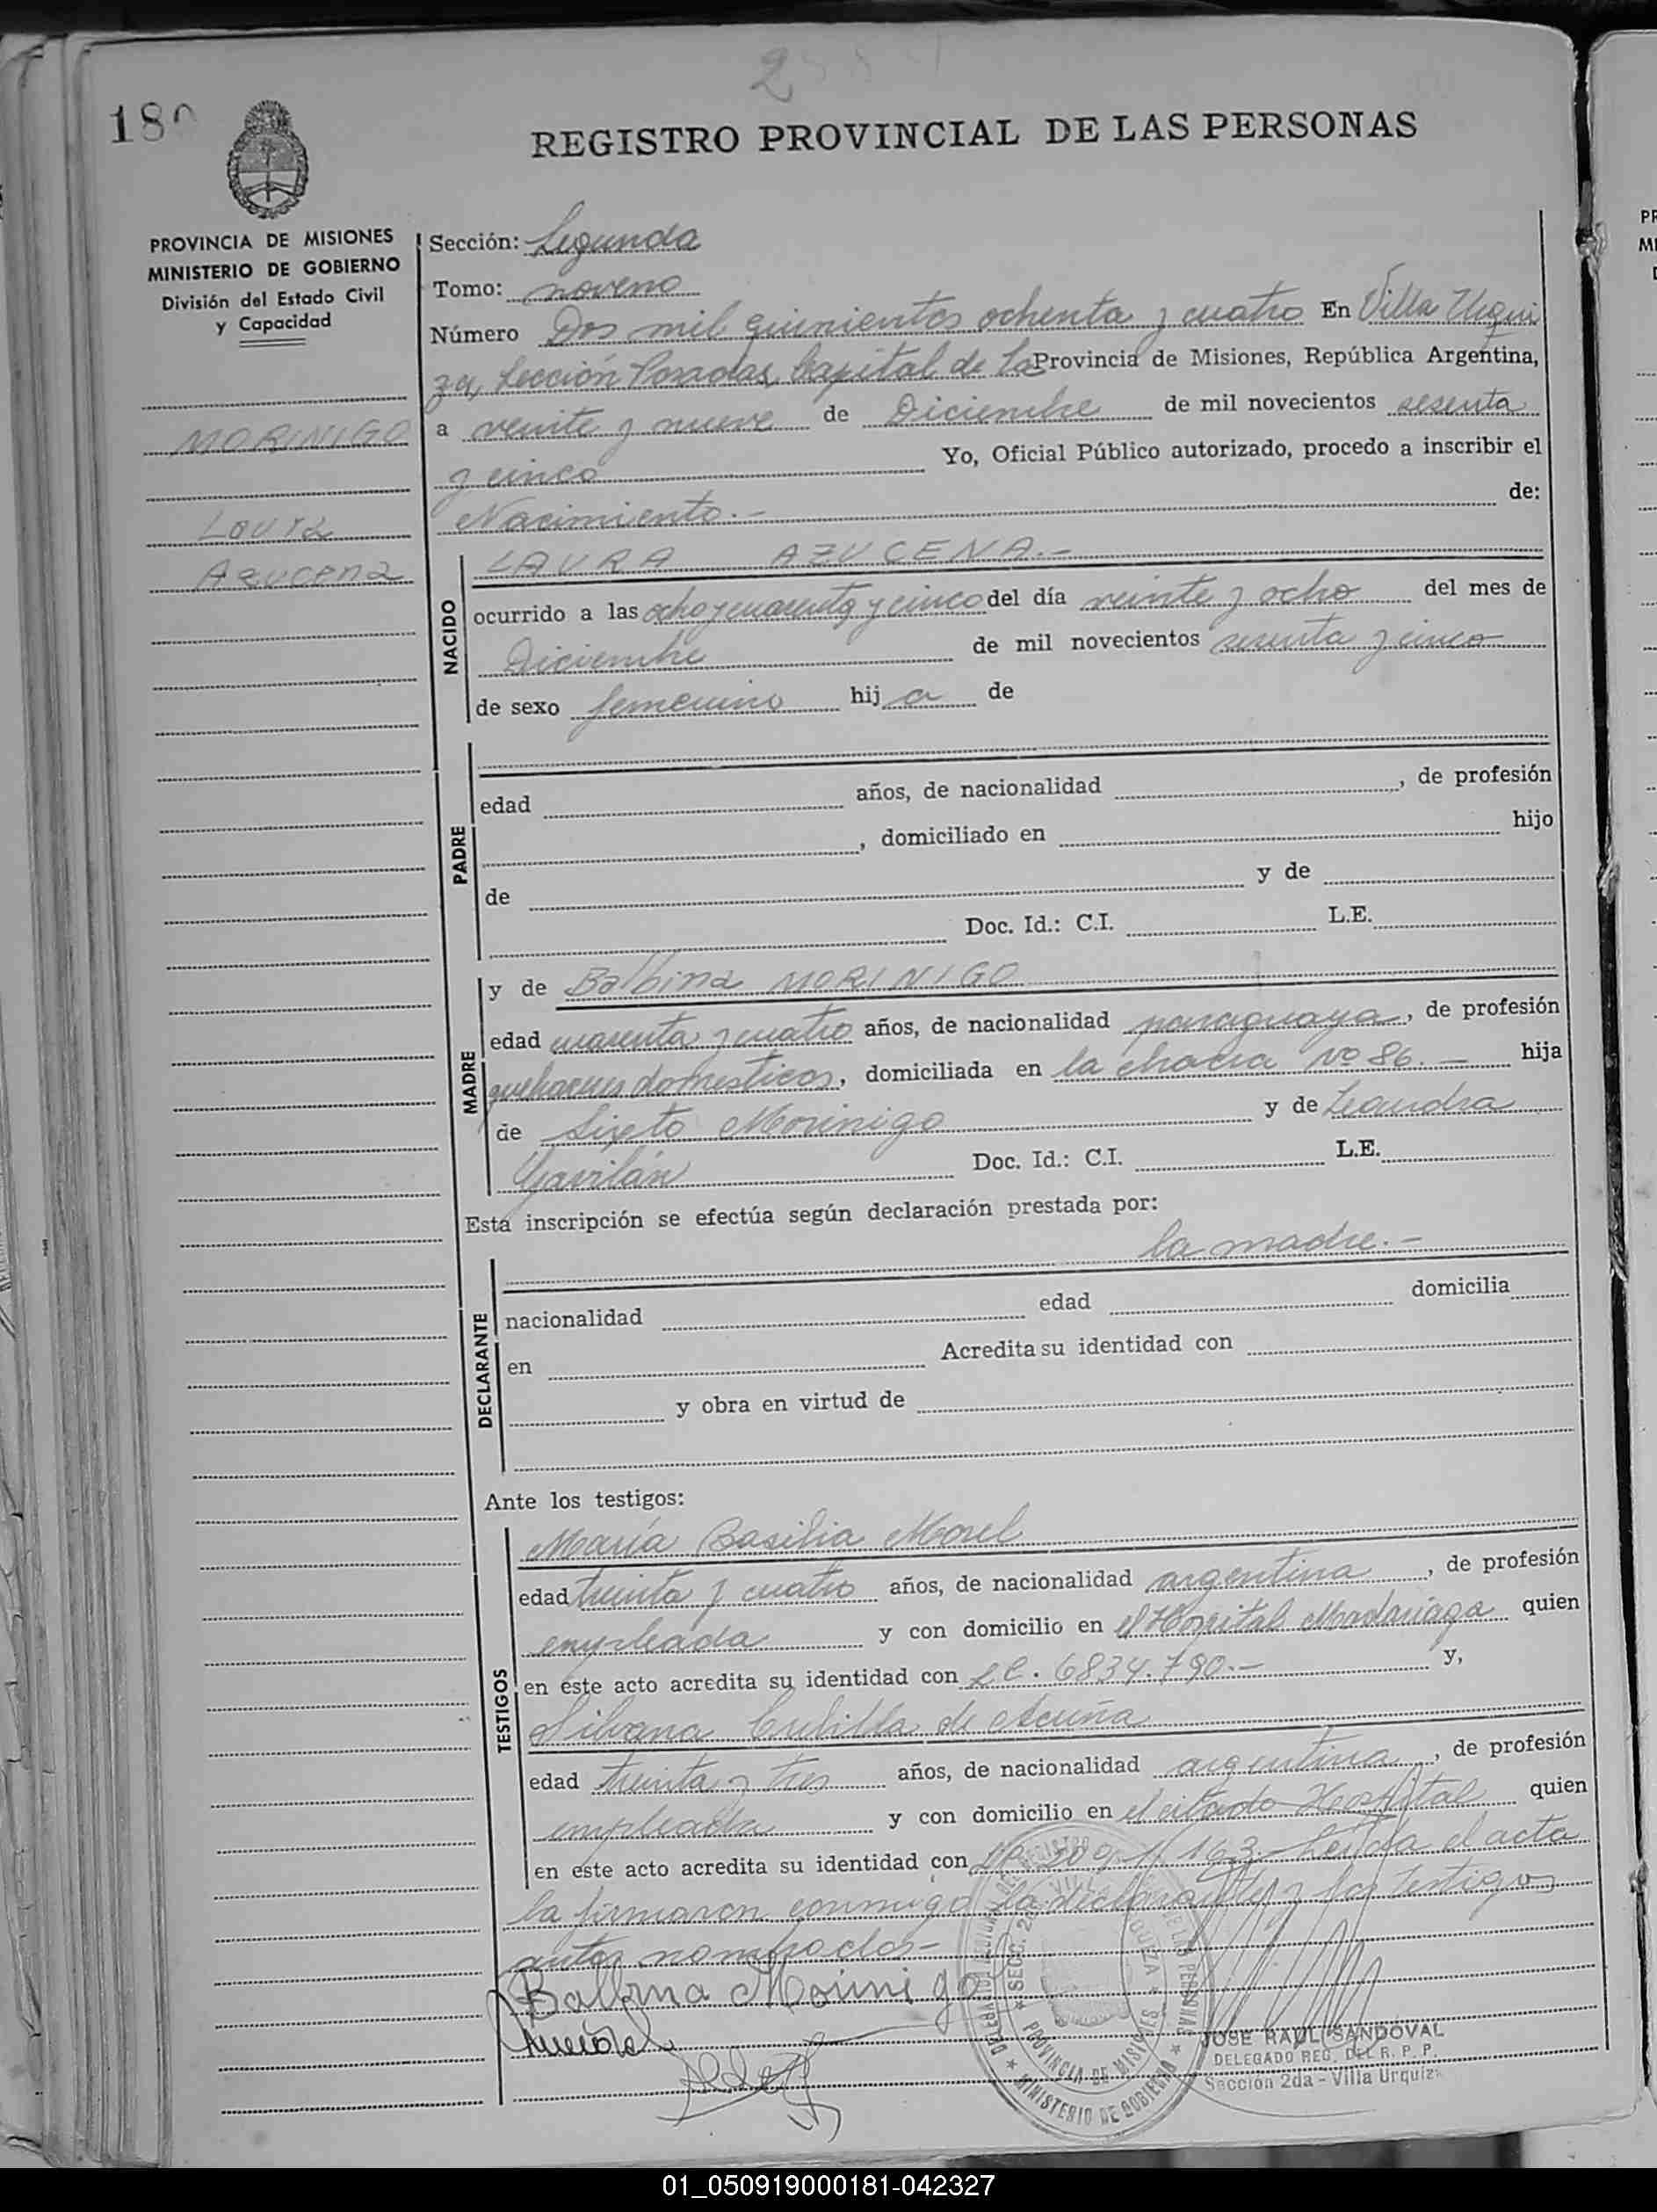 2
18
REGISTRO PROVINCIAL DE LAS PERSONAS
PROVINCIA DE MISIONES
MINISTERIO DE GOBIERNO
División del Estado Civil
y Capacidad
MORINIGO
Laura
Azucena
Sección: Segunda
Tomo: noveno
Número Dos mil quinientos ochenta y cuatro En Villa Urqui
za, Sección Posadas, Capital de la Provincia de Misiones, República Argentina,
a veinte y nueve de Diciembre de mil novecientos sesenta
y cinco Yo, Oficial Público autorizado, procedo a inscribir el
Nacimiento.- de:
NACIDO
LAURA AZUCENA.-
ocurrido a las ocho y cuarenta y cinco del día veinte y ocho del mes de
Diciembre de mil novecientos sesenta y cinco
de sexo femenino hij a de
PADRE
edad años, de nacionalidad , de profesión
, domiciliado en hijo
de y de
Doc. Id.: C.I. L.E.
MADRE
y de Balbina MORINIGO
edad cuarenta y cuatro años, de nacionalidad paraguaya, de profesión
quehaceres domesticos, domiciliada en la chacra Nº 86.- hija
de Sixto Morinigo y de Leandra
Gavilán Doc. Id.: C.I. L.E.
Esta inscripción se efectúa según declaración prestada por:
la madre.-
DECLARANTE
nacionalidad edad domicilia
en Acredita su identidad con
y obra en virtud de
Ante los testigos:
TESTIGOS
María Basilia Morel
edad treinta y cuatro años, de nacionalidad argentina, de profesión
empleada y con domicilio en el Hospital Madariaga quien
en este acto acredita su identidad con LC. 6834.790.- y,
Silvana Cubilla de Acuña
edad treinta y tres años, de nacionalidad argentina, de profesión
empleada y con domicilio en el citado Hospital quien
en este acto acredita su identidad con 163.- Leída el acta
la firmaron conmigo la declarante y los testigos
antes nombrados-
Balbina Morinigo
SECC. 2
PROVINCIA DE MISIONES
MINISTERIO DE GOBIERNO
JOSE RAUL SANDOVAL
DELEGADO REG. DEL R. P. P.
Sección 2da - Villa Urquiza
01_050919000181-042327